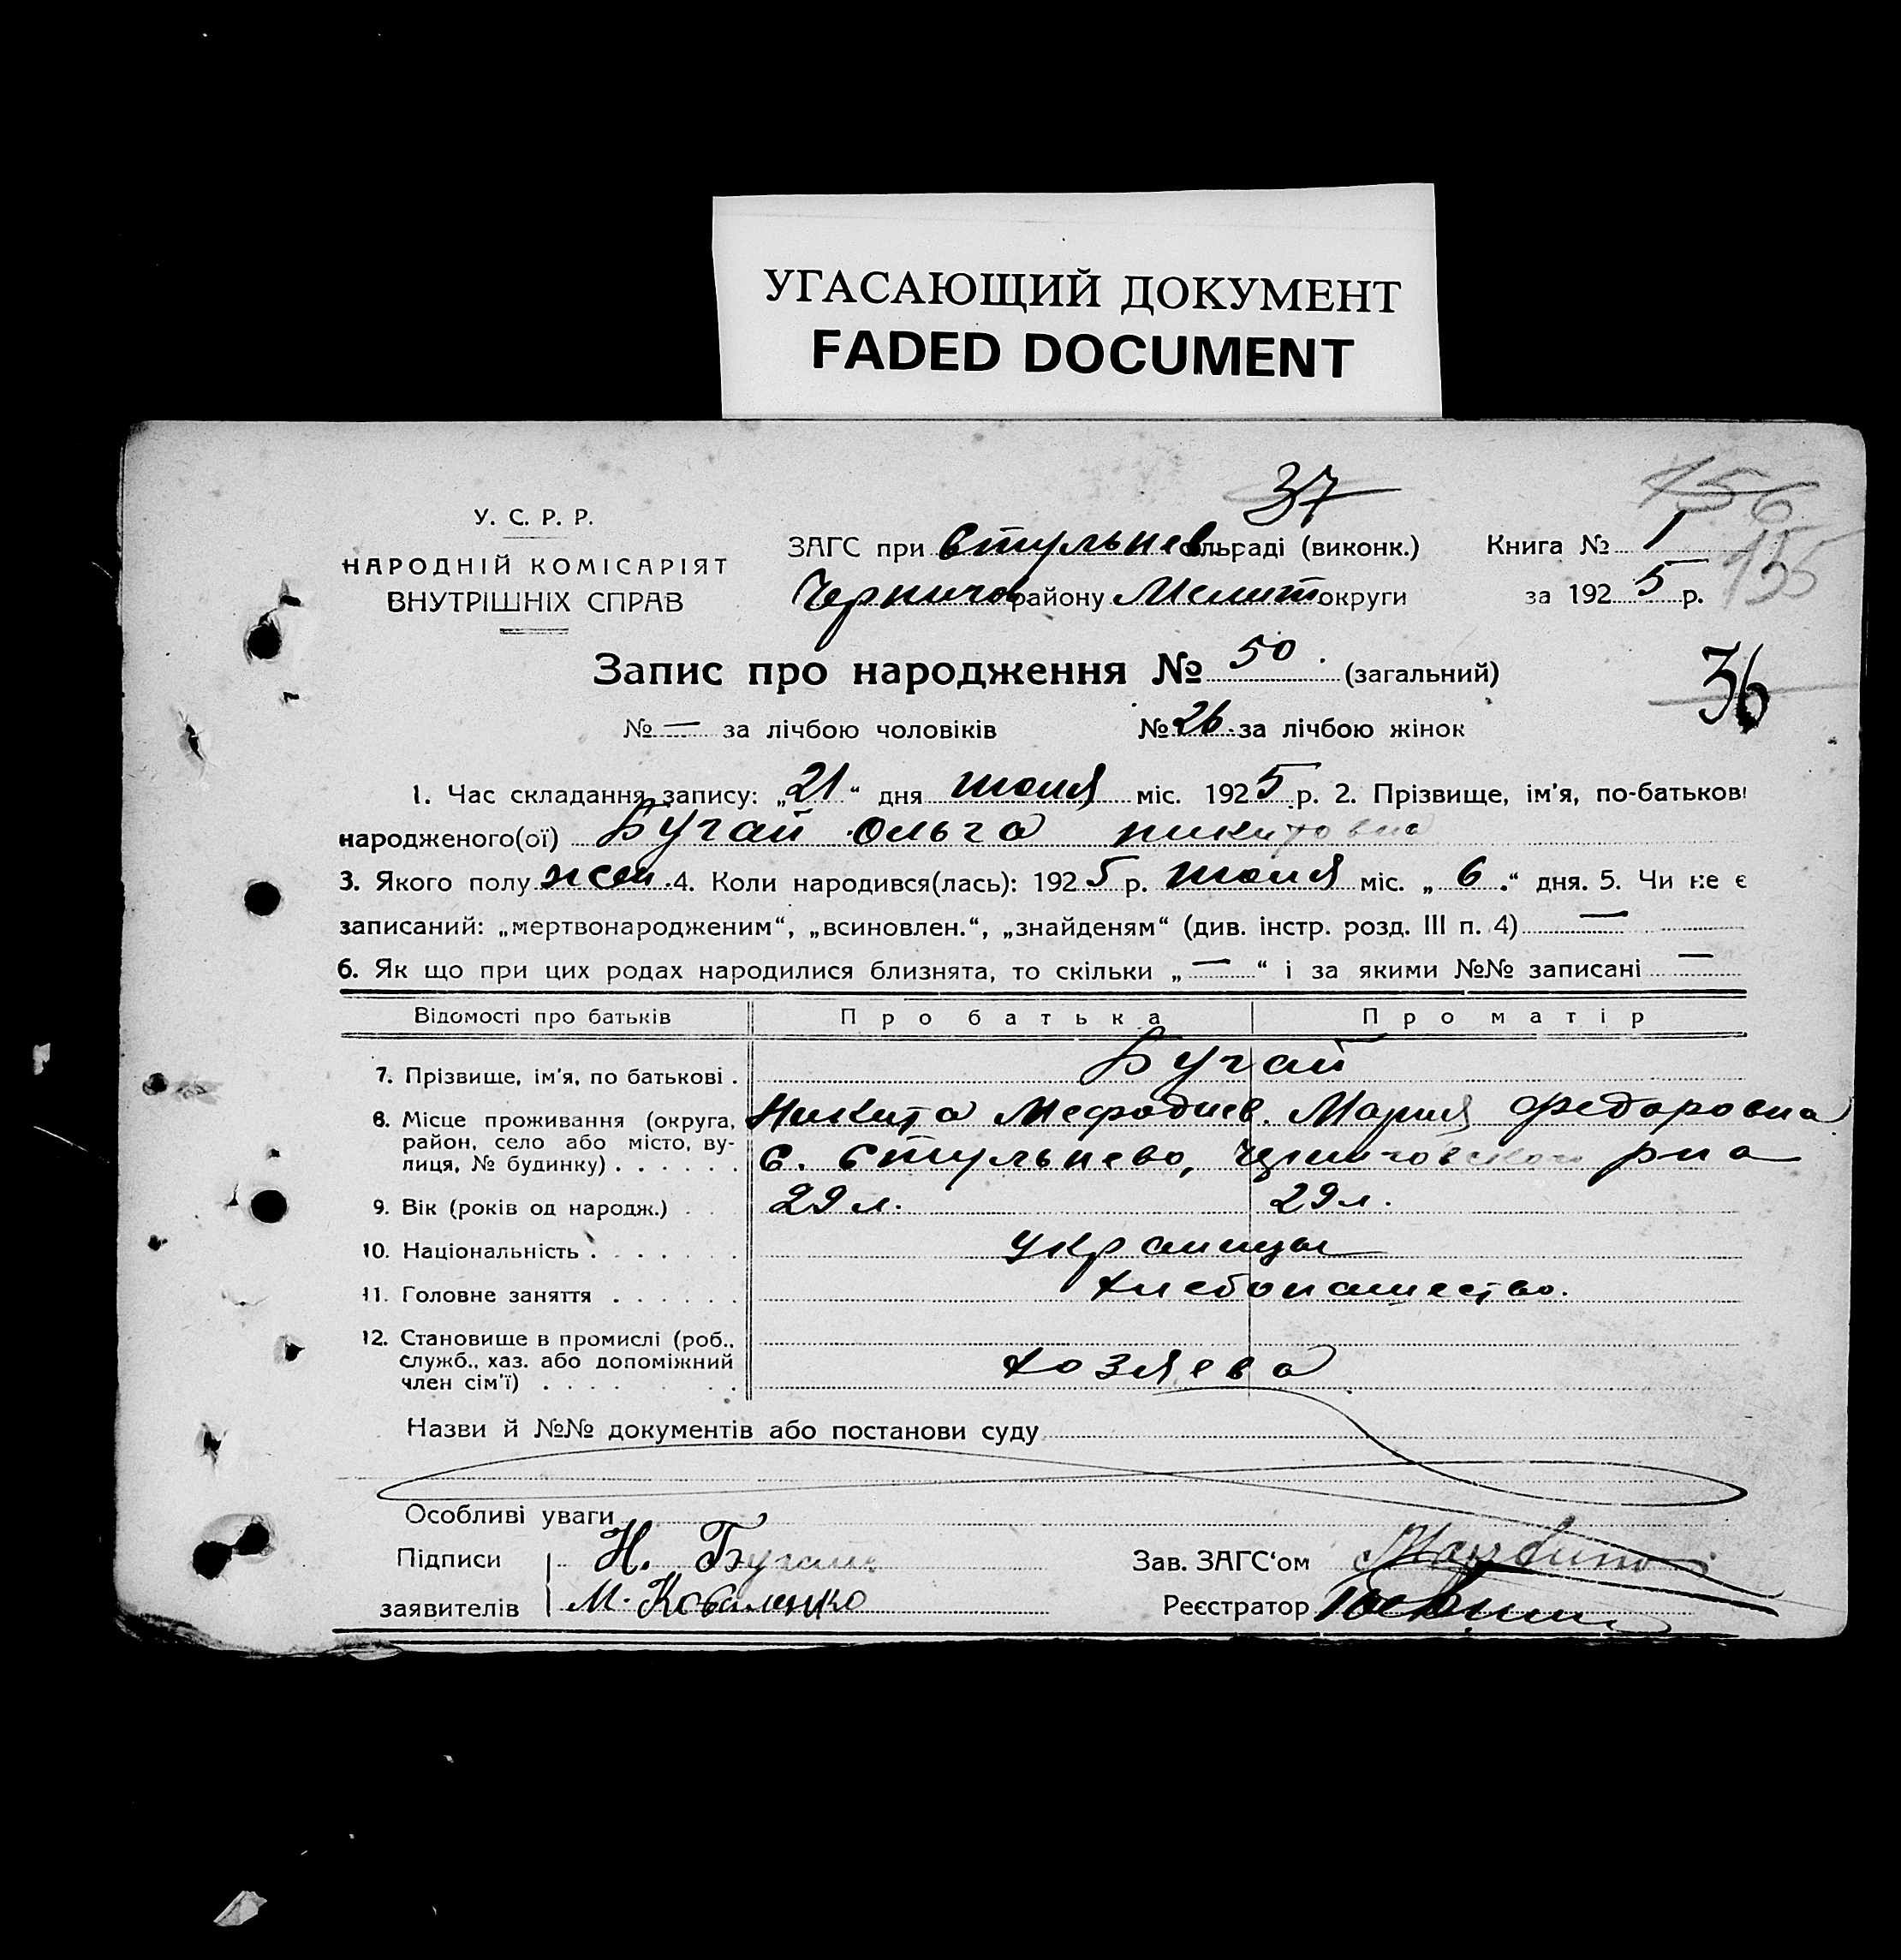 УГАСАЮЩИЙ ДОКУМЕНТ
FADED DOCUMENT
37
156
155
У. С. Р. Р.
НАРОДНІЙ КОМІСАРІЯТ
ВНУТРІШНІХ СПРАВ
ЗАГС при Стульнев сільраді (виконк.) Книга № 1
Чернигов району Мелит округи за 1925 р.
Запис про народження № 50. (загальний)
36
№ — за лічбою чоловіків № 26. за лічбою жінок
1. Час складання запису: „21“ дня июля міс. 1925 р. 2. Прізвище, ім'я, по-батькові
народженого(ої) Бугай Ольга Никитовна
3. Якого полу жен. 4. Коли народився(лась): 1925 р. июля міс. „6.“ дня. 5. Чи не є
записаний: „мертвонародженим“, „всиновлен.“, „знайденям“ (див. інстр. розд. III п. 4) —
6. Як що при цих родах народилися близнята, то скільки „—“ і за якими №№ записані —
Відомості про батьків Про батька Про матір
7. Прізвище, ім'я, по батькові . Бугай
Никита Мефодиев. Мария Федоровна
8. Місце проживання (округа, район, село або місто, вулиця, № будинку) . . . . . . С. Стульнево, Черниговского р-на
9. Вік (років од народж.) . . . 29 л. 29 л.
10. Національність . . . . . . . украинцы
11. Головне заняття . . . . . . хлебопашество.
12. Становище в промислі (роб.,
служб., хаз. або допоміжний
член сім'ї) . . . . . . . . хозяева
Назви й №№ документів або постанови суду
Особливі уваги
Підписи Н. Бугай Зав. ЗАГС'ом
заявителів М. Коваленко Реєстратор